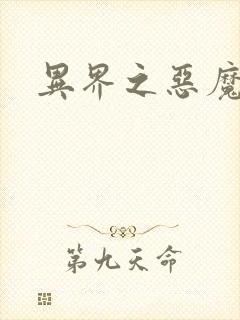 異界之惡魔
第九天命